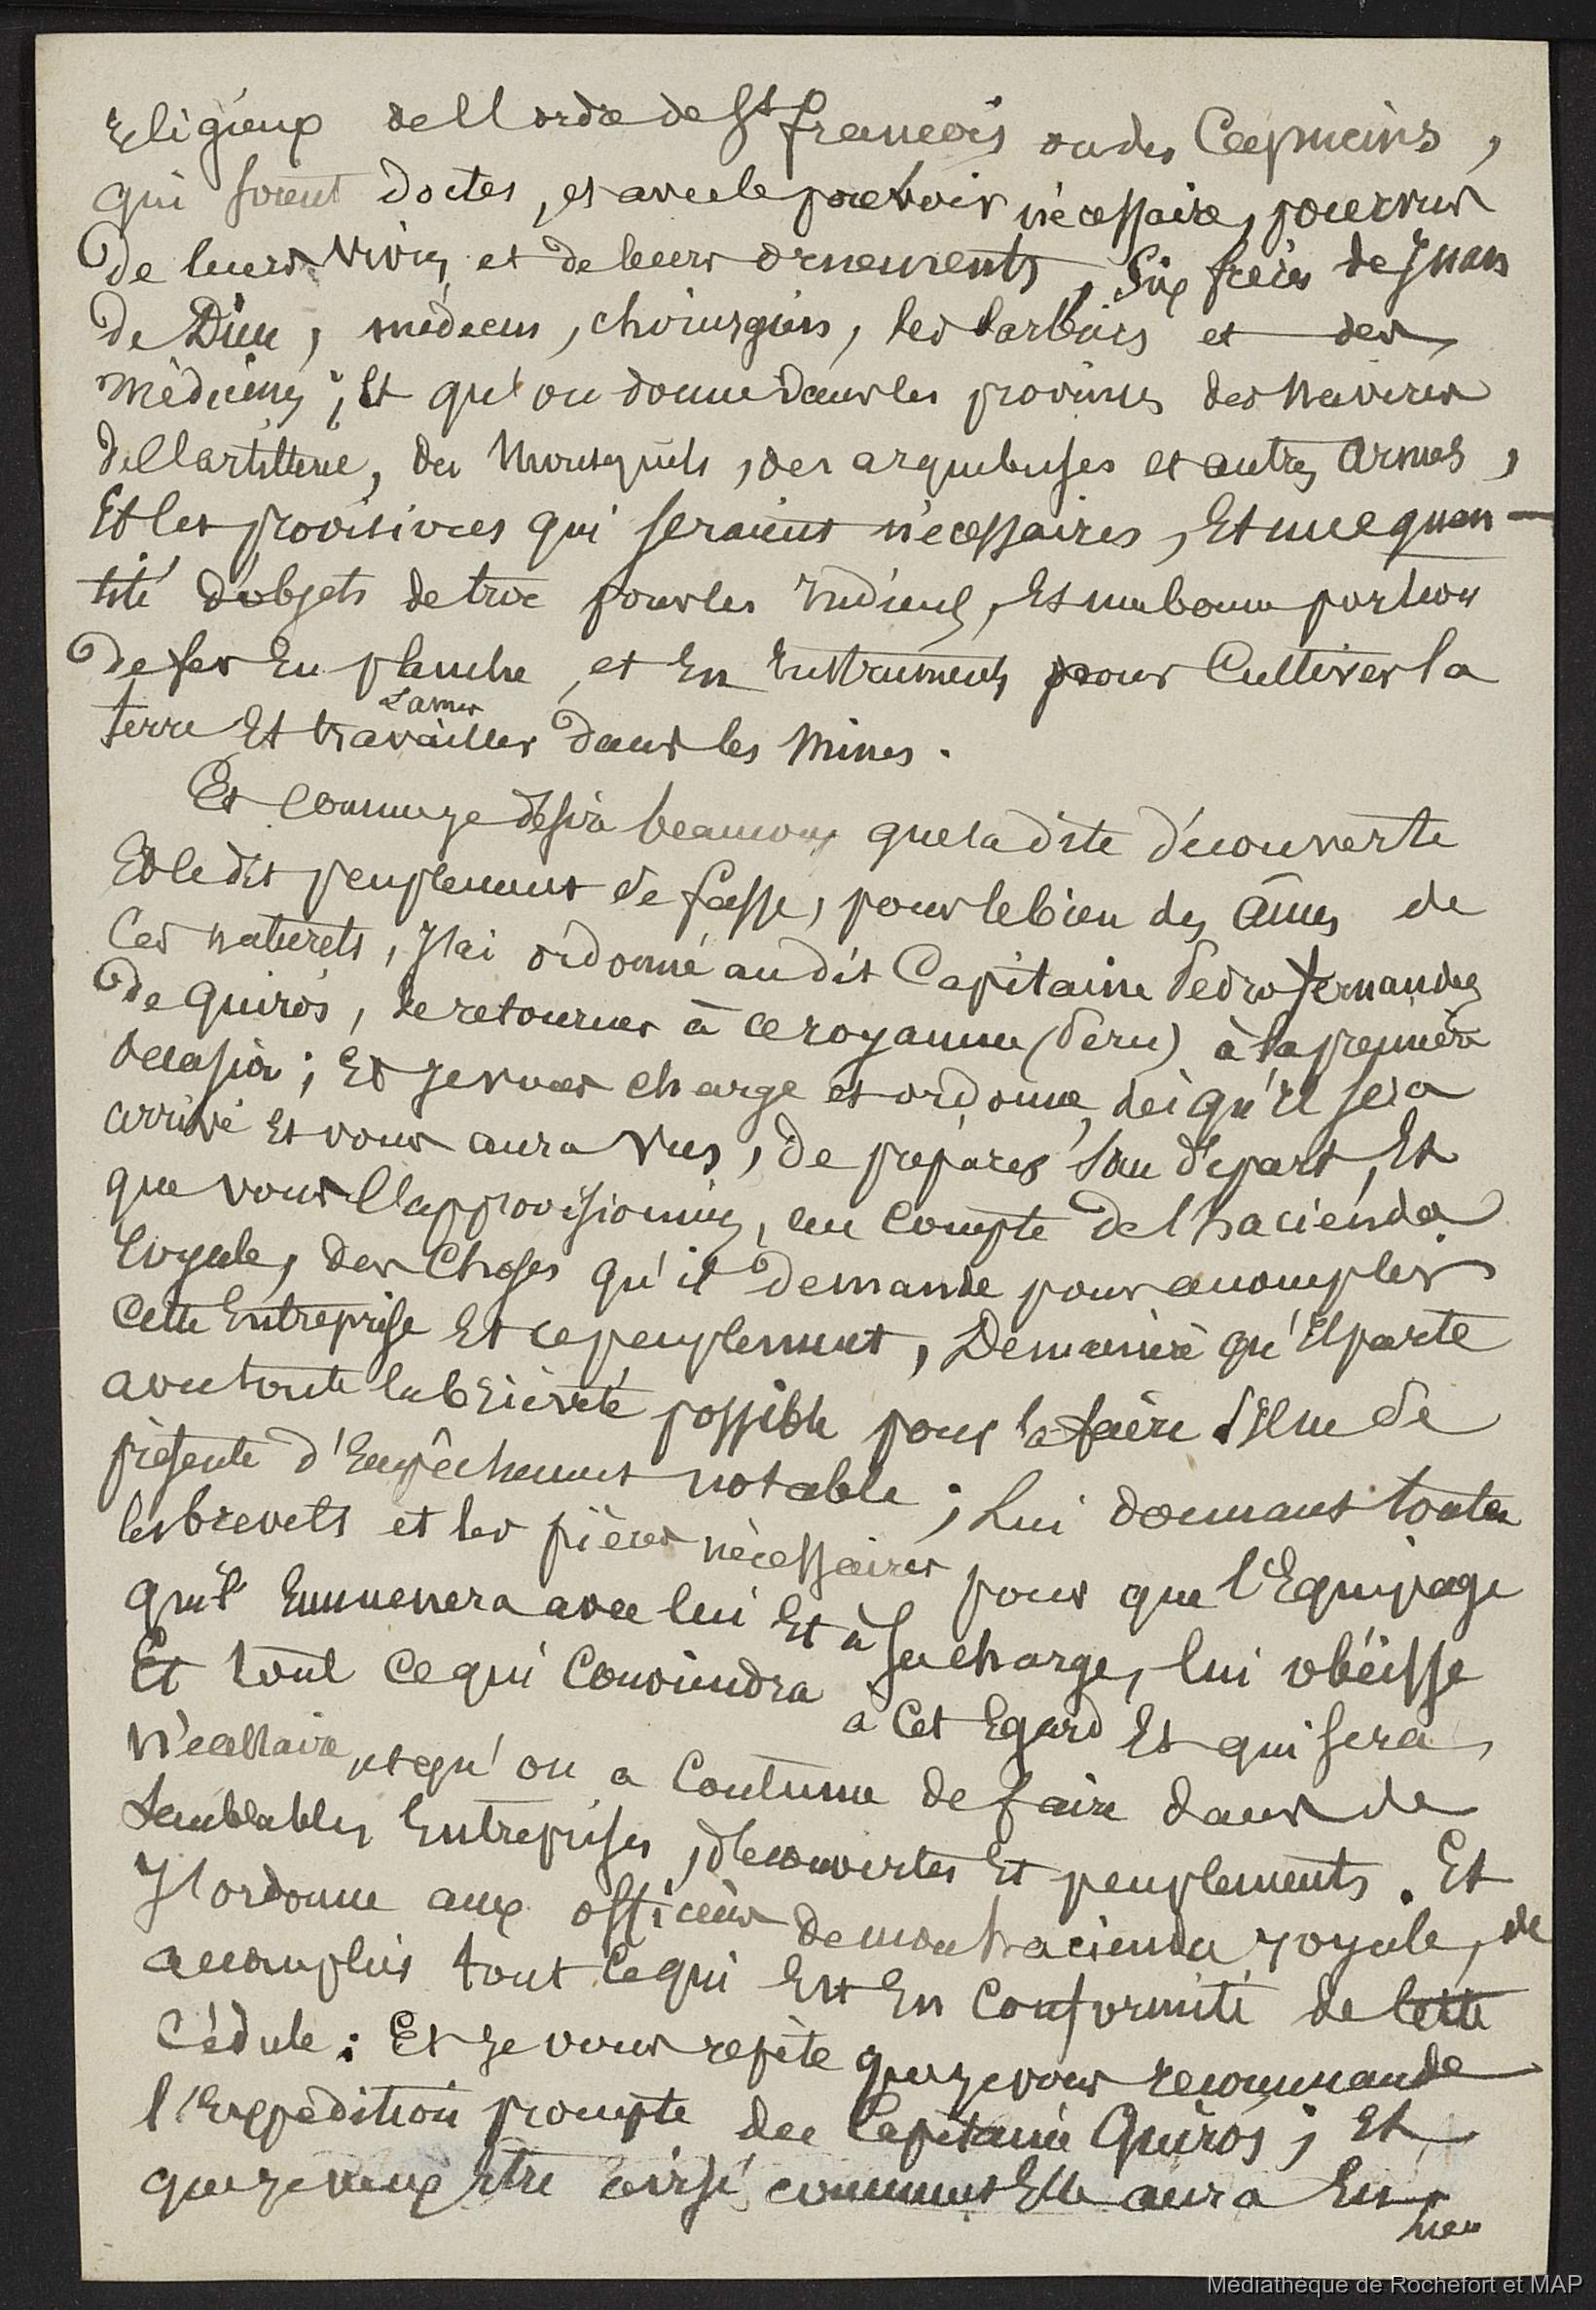 religieux de ll'ordre de St francois ou des Capucins,
qui soient doctes, et avec le pouvoir nécessaire, pourvus
de leurs vivres et de leurs ornements, Six frères de Juan
de Dieu, médecins, chirurgiens, des barbiers et des
médecines; Et qu'on donne dans les provinces des navires
de ll'artillerie, des mousquets, des arquebuses et autres armes,
Et les provisions qui seraient nécessaires, Et une quan-
tité d'objets de troc pour les Indiens, Et une bonne portion
de fer En planche, et En Instruments pour Cultiver la
terre Et travailler dans les Mines.
Et comme je désire beaucoup que la dite découverte
Et le dit peuplement se fasse, pour le bien des âmes de
Ces naturels, J'ai ordonné au dit Capitaine Pedro Fernandez
de Quiros, de retourner à ce royaume (Péru) à la première
occasion; Et je vous charge et ordonne, dès qu'il sera
arrivé Et vous aura vus, de préparer son départ, Et
que vous ll'approvisionniez, au compte de l'hacienda
royale, des Choses qu'il demande pour accomplir
Cette Entreprise Et ce peuplement, De manière qu'Il parte
avec toute la brièveté possible pour la faire s'Il ne se
présente d'Empêchement notable; Lui donnant toutes
les brevets et les pièces nécessaires pour que l'Equipage
qu'il Emmenera avec lui Et à sa charge, lui obéisse
Et tout ce qui Conviendra à Cet Egard Et qui sera
nécessaire, et qu'on a Coutume de faire dans de
Semblables Entreprises, découvertes Et peuplements. Et
J'ordonne aux officiers de mon hacienda royale, de
accomplir tout ce qui Est En Conformité de cette
Cédule: Et je vous repète que je vous recommande
l'Expédition prompte du Capitaine Quiros; Et
que je veux être avisé comment Elle aura Eu
lieu
Médiathèque de Rochefort et MAP